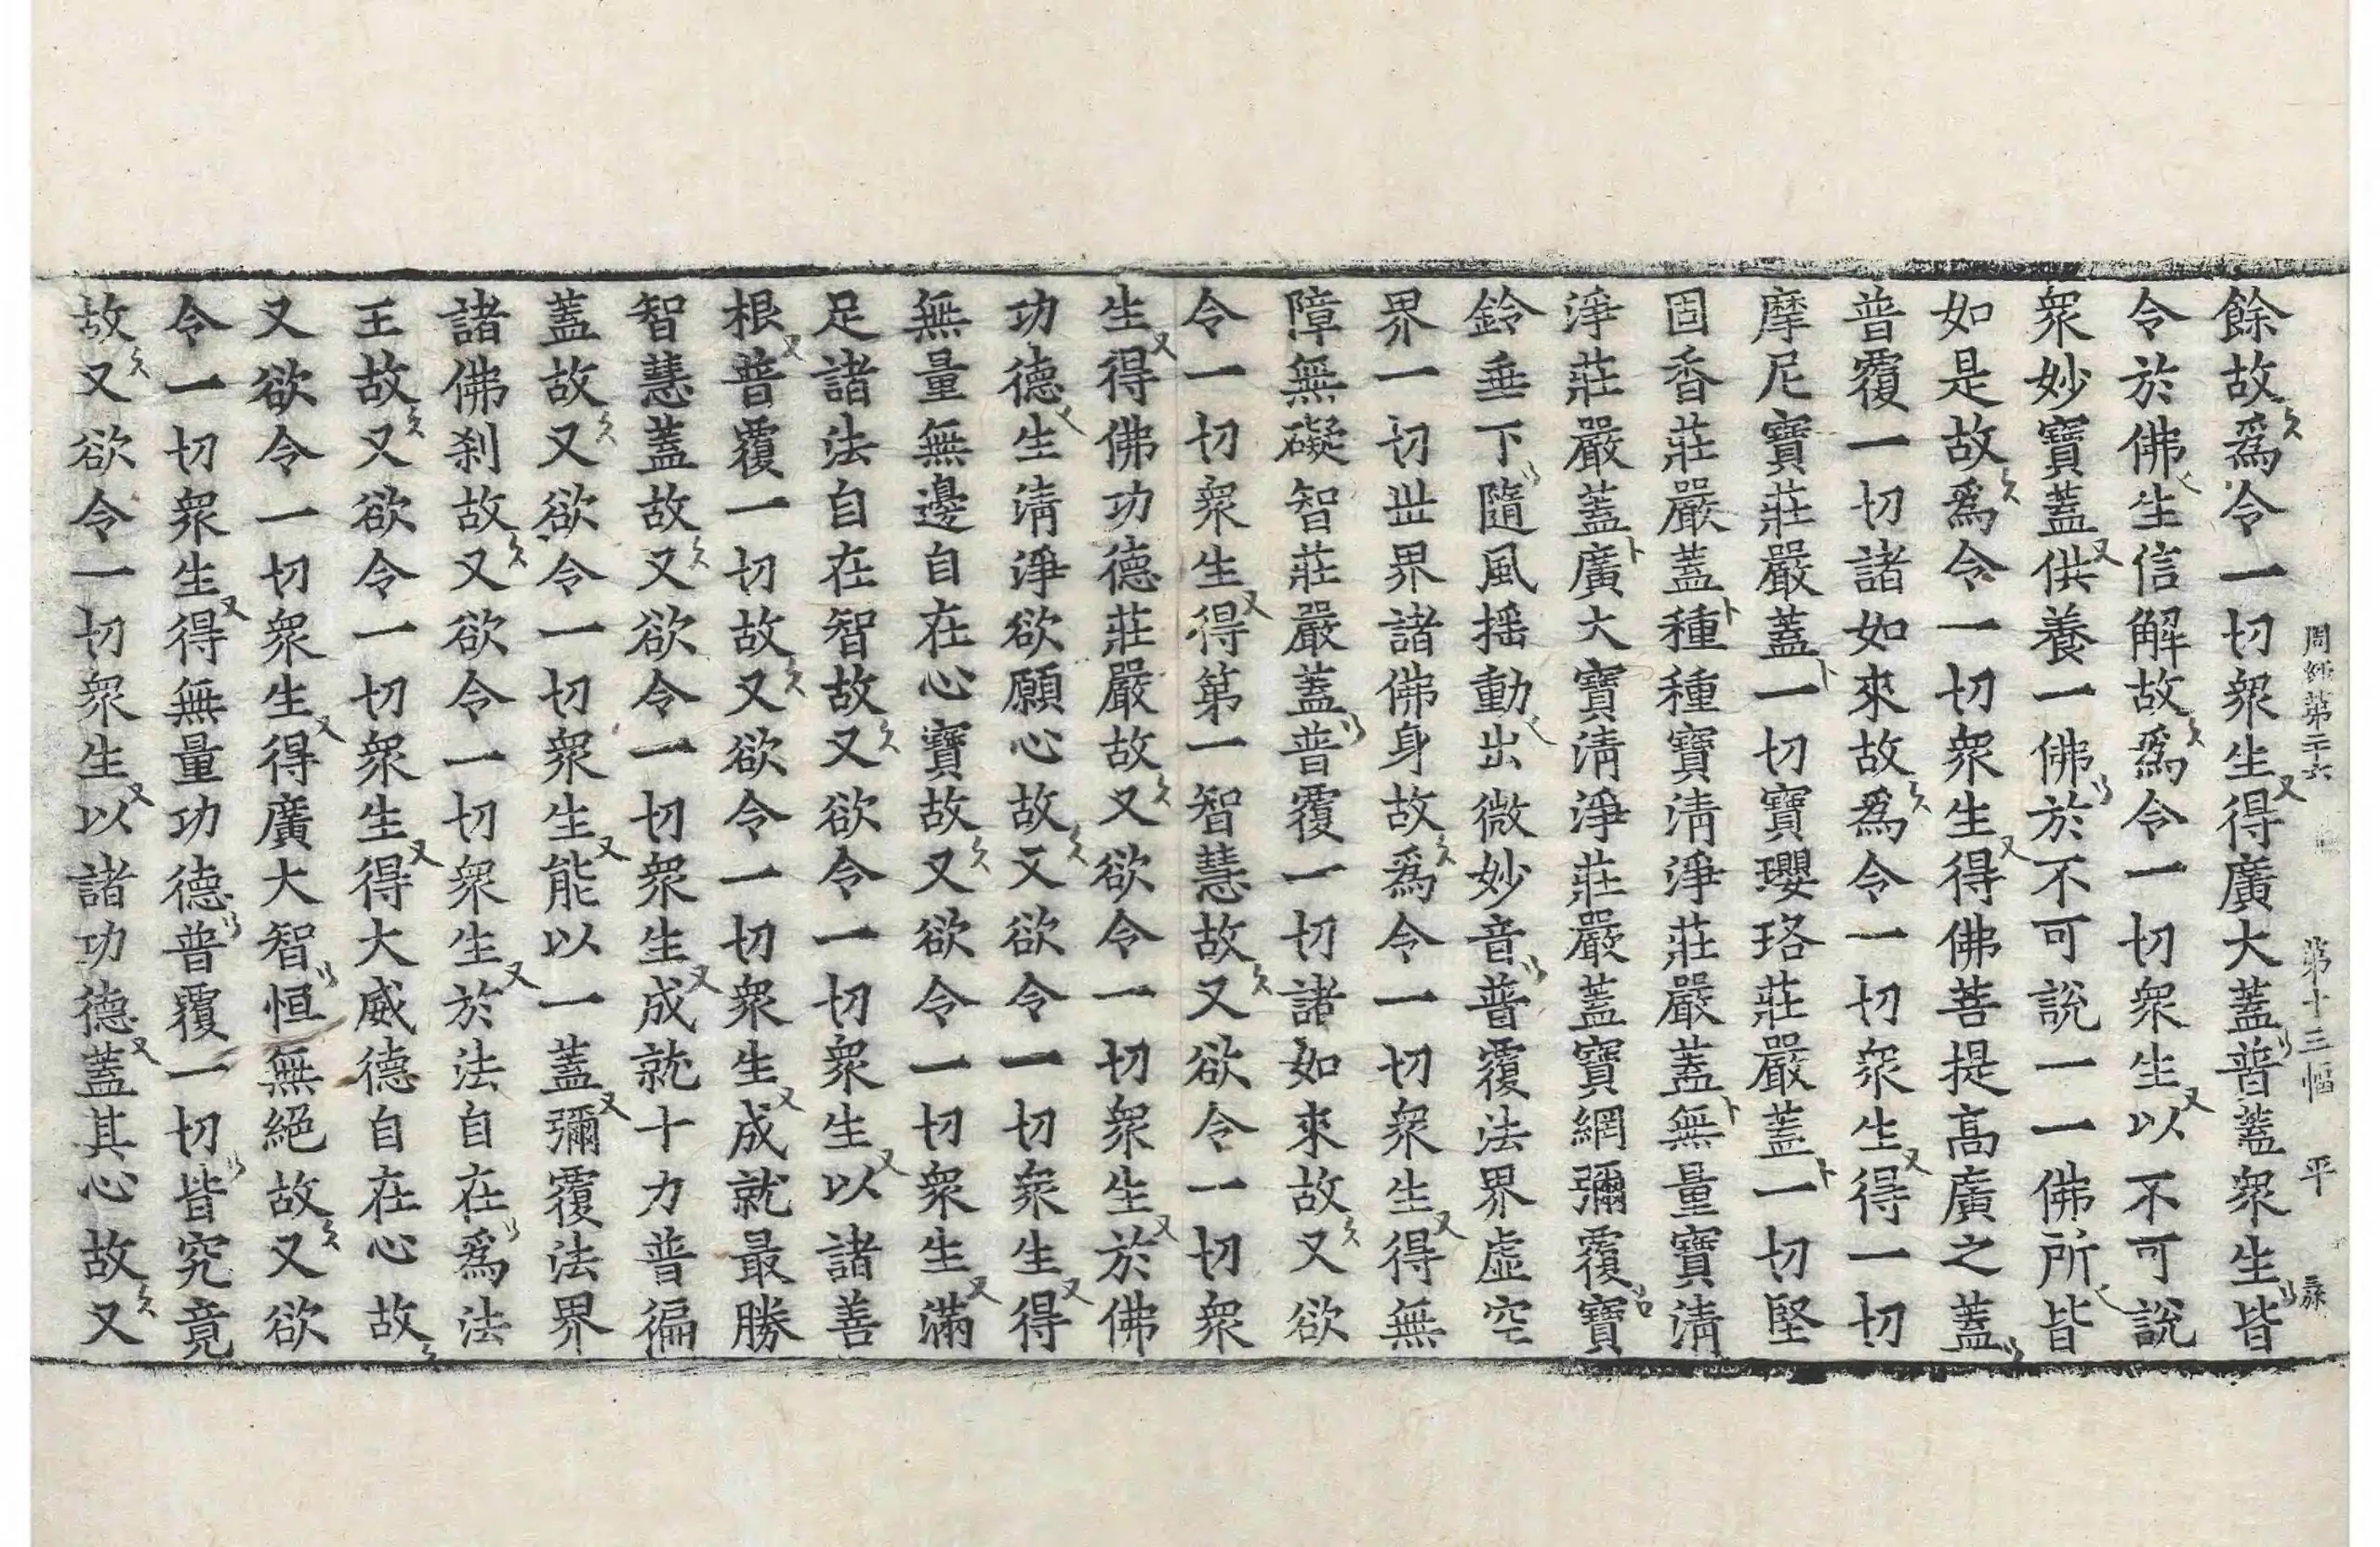 周經第二十六 第十三幅 平
餘故爲令一切衆生得廣大蓋普蓋衆生皆
令於佛生信解故爲令一切衆生以不可說
衆妙寶蓋供養一佛於不可說一一佛所皆
如是故爲令一切衆生得佛菩提高廣之蓋
普覆一切諸如來故爲令一切衆生得一切
摩尼寶莊嚴蓋一切寶瓔珞莊嚴蓋一切堅
固香莊嚴蓋種種寶清淨莊嚴蓋無量寶清
淨莊嚴蓋廣大寶清淨莊嚴蓋寶網彌覆寶
鈴垂下隨風摇動出微妙音普覆法界虛空
界一切世界諸佛身故爲令一切衆生得無
障無礙智莊嚴蓋普覆一切諸如來故又欲
令一切衆生得第一智慧故又欲令一切衆
生得佛功德莊嚴故又欲令一切衆生於佛
功德生清淨欲願心故又欲令一切衆生得
無量無邊自在心寶故又欲令一切衆生滿
足諸法自在智故又欲令一切衆生以諸善
根普覆一切故又欲令一切衆生成就最勝
智慧蓋故又欲令一切衆生成就十力普徧
蓋故又欲令一切衆生能以一蓋彌覆法界
諸佛刹故又欲令一切衆生於法自在爲法
王故又欲令一切衆生得大威德自在心故
又欲令一切衆生得廣大智恒無絕故又欲
令一切衆生得無量功德普覆一切皆究竟
故又欲令一切衆生以諸功德蓋其心故又